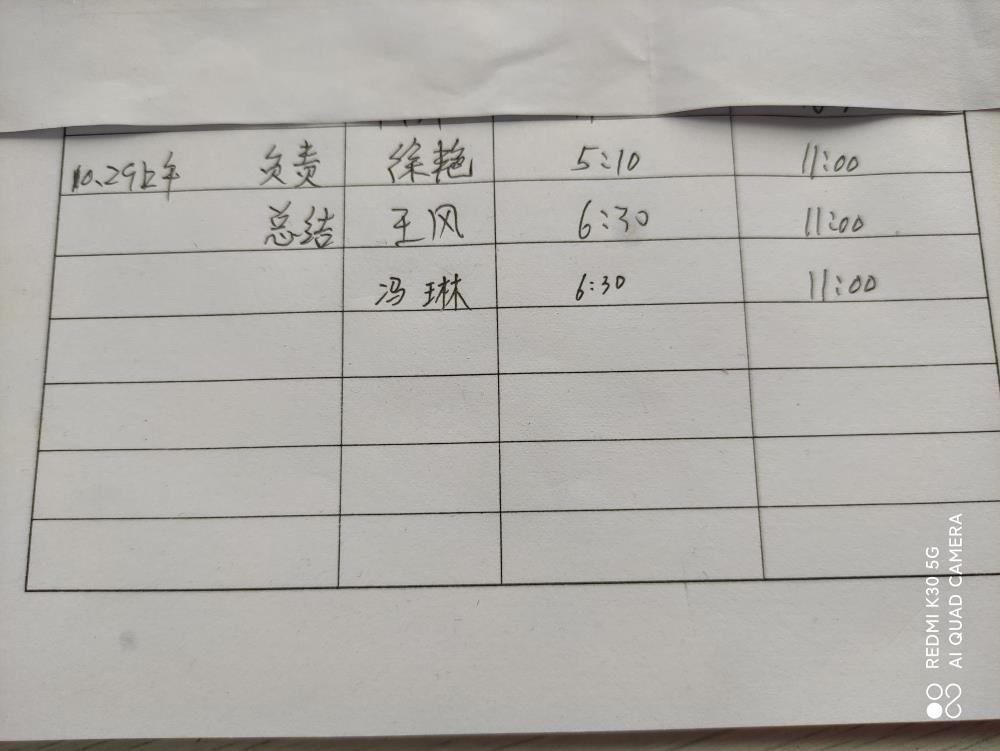 10.29上午 负责 徐艳 5:10 11:00
总结 王风 6:30 11:00
冯琳 6:30 11:00
REDMI K30 5G
AI QUAD CAMERA